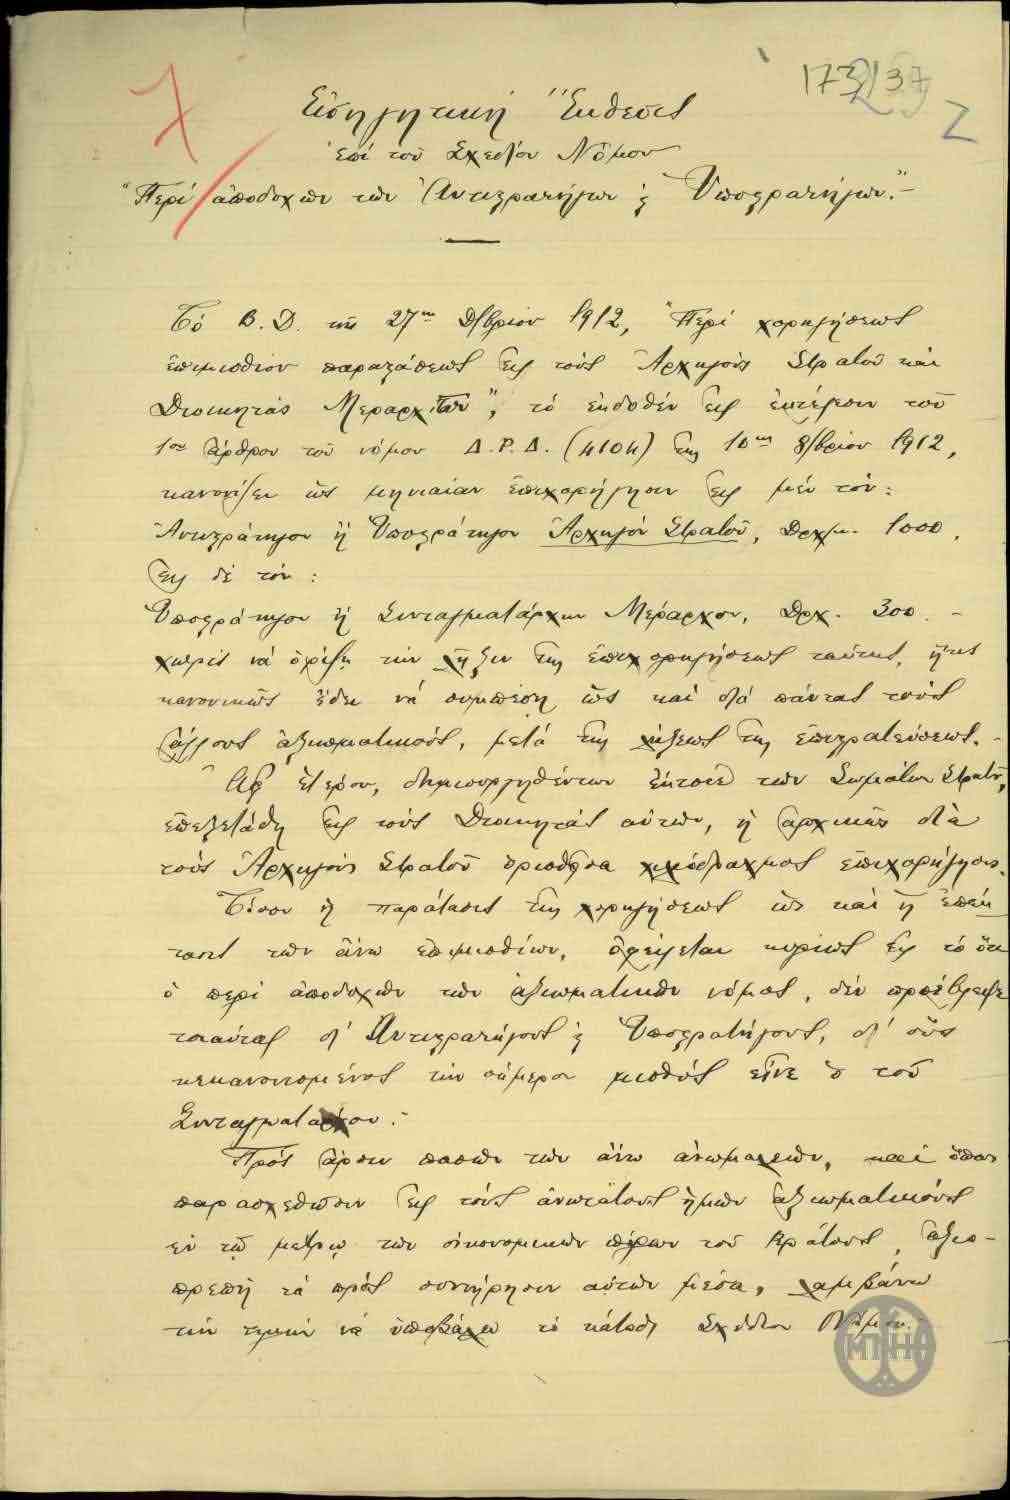 173/37
Z
Εἰσηγητική Ἔκθεσις
ἐπί τοῦ Σχεδίου Νόμου
"Περί ἀποδοχῶν τῶν Ἀντιστρατήγων & Ὑποστρατήγων."-
Τό Β.Δ. τῆς 27ης 8/βρίου 1912, "Περί χορηγήσεως
ἐπιμισθίου παραστάσεως εἰς τούς Ἀρχηγούς Στρατοῦ καί
Διοικητάς Μεραρχιῶν", τό ἐκδοθέν εἰς ἐκτέλεσιν τοῦ
1ου ἄρθρου τοῦ νόμου Δ.Ρ.Δ. (4104) τῆς 10ης 8/βρίου 1912,
κανονίζει ὡς μηνιαίαν ἐπιχορήγησιν εἰς μέν τόν:
Ἀντιστράτηγον ἤ Ὑποστράτηγον Ἀρχηγόν Στρατοῦ, Δρχμ. 1000,
εἰς δέ τόν:
Ὑποστράτηγον ἤ Συνταγματάρχην Μέραρχον, Δρχ. 300 -
χωρίς νά ὁρίσῃ τήν λῆξιν τῆς ἐπιχορηγήσεως ταύτης, ἥτις
κανονικῶς ἔδει νά συμπέσῃ ὡς καί διά πάντας τούς
ἄλλους ἀξιωματικούς, μετά τῆς λήξεως τῆς ἐπιστρατεύσεως.-
Ἀφ' ἑτέρου, δημιουργηθέντων ἔκτοτε τῶν Σωμάτων Στρατοῦ,
ἐπεξετάθη εἰς τούς Διοικητάς αὐτῶν, ἡ ἀρχικῶς διά
τούς Ἀρχηγούς Στρατοῦ ὁρισθεῖσα χιλιόδραχμος ἐπιχορήγησις.
Τόσον ἡ παράτασις τῆς χορηγήσεως ὡς καί ἡ ἐπέκ
τασις τῶν ἄνω ἐπιμισθίων, ὀφείλεται κυρίως εἰς τό ὅτι
ὁ περί ἀποδοχῶν τῶν ἀξιωματικῶν νόμος, δέν προέβλεψε
τοιαύτας δι' Ἀντιστρατήγους & Ὑποστρατήγους, δι' οὕς
κεκανονισμένος τήν σήμερον μισθός εἶνε ὁ τοῦ
Συνταγματάρχου.-
Πρός ἄρσιν πασῶν τῶν ἄνω ἀνωμαλιῶν, καί ὅπως
παρασχεθῶσιν εἰς τούς ἀνωτάτους ἡμῶν ἀξιωματικούς
ἐν τῷ μέτρῳ τῶν οἰκονομικῶν πόρων τοῦ Κράτους, ἀξιο-
πρεπῆ τά πρός συντήρησιν αὐτῶν μέσα, λαμβάνω
τήν τιμήν νά ὑποβάλω τό κάτωθι Σχέδιον Νόμου.-
ΜΠΗ